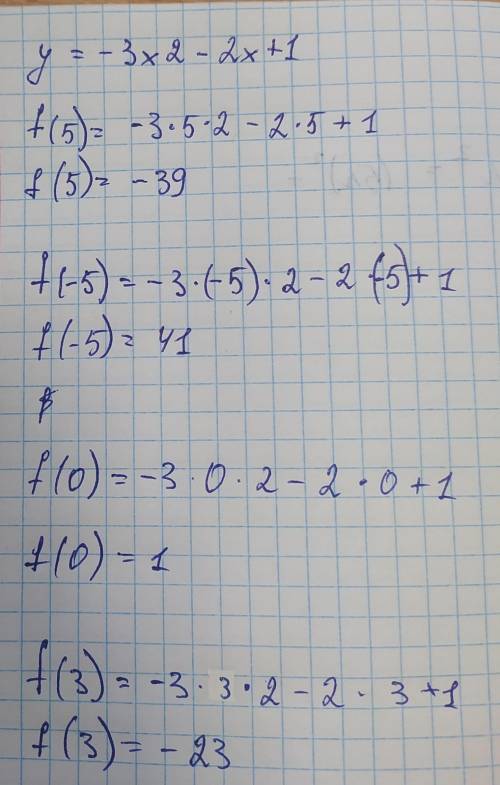 y = -3x2 - 2x+1
f(5)= -3·5·2 - 2·5+1
f(5)= -39
f(-5)= -3·(-5)·2 - 2(-5)+1
f(-5)= 41
f(0)= -3·0·2 - 2·0+1
f(0)= 1
f(3)= -3·3·2 - 2·3+1
f(3)= -23